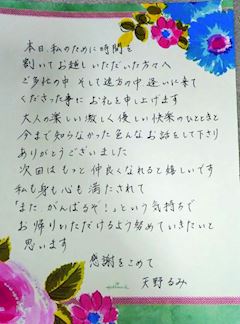 本日、私のために時間を
割いてお越しいただいた方々へ
ご多忙の中 そして遠方の中 逢いに来て
くださった事に お礼を申し上げます
大人の楽しい激しく優しい快楽のひとときと
今まで知らなかった色んなお話をして下さり
ありがとうございました
次回は もっと仲良くなれると嬉しいです
私も身も心も満たされて
「また がんばるぞ！」という気持ちで
お帰りいただけるよう努めていきたいと
思います
感謝をこめて
天野るみ
Hallmark